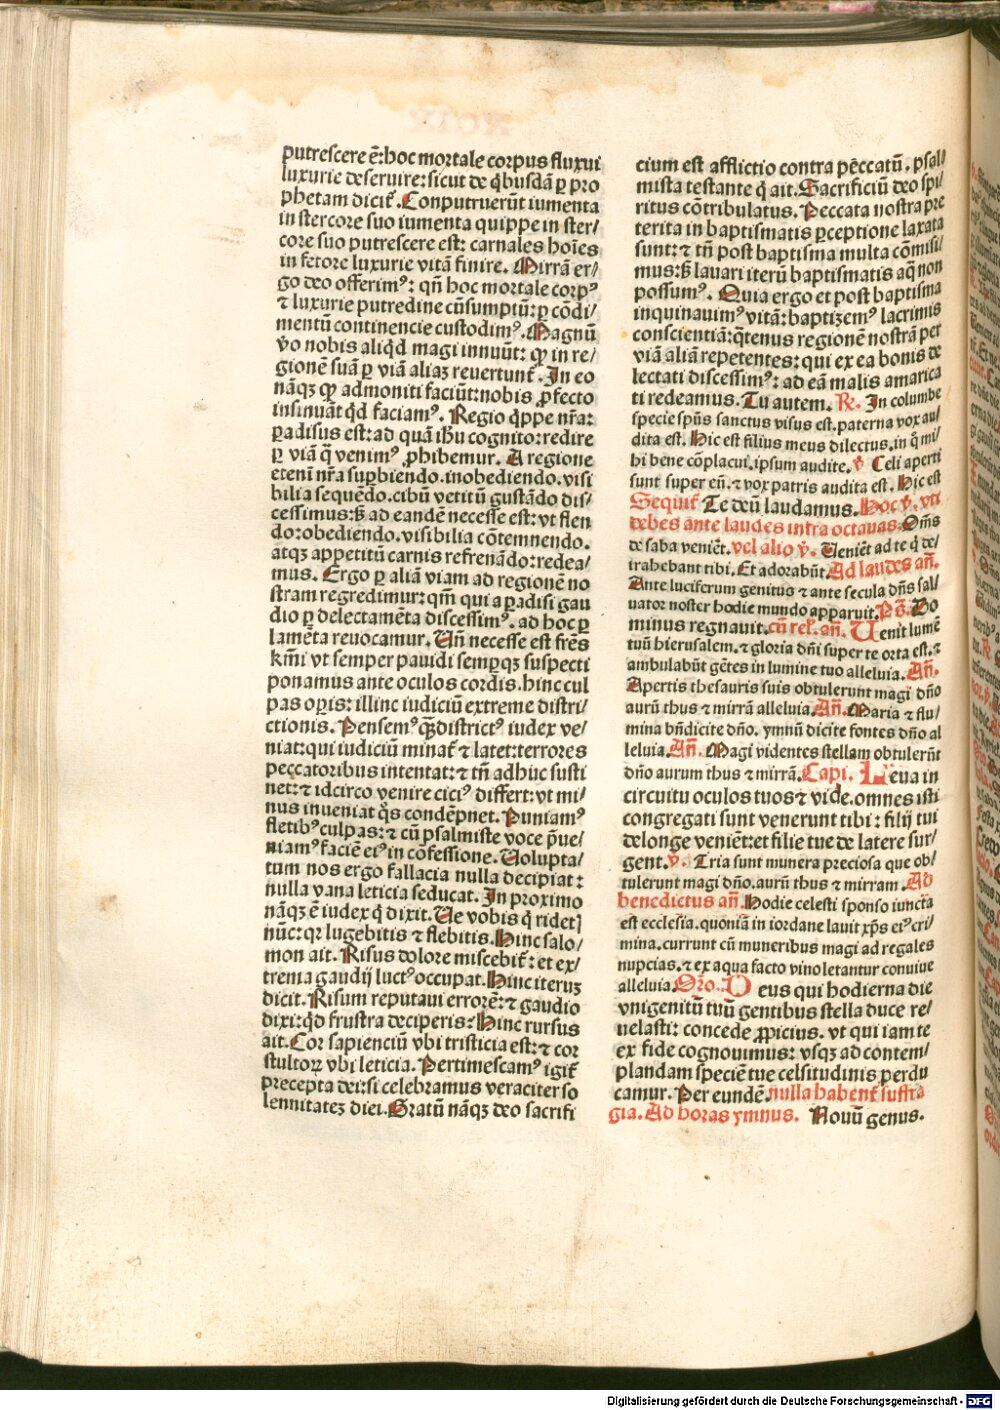 putrescere ē: hoc mortale corpus fluxui
luxurie deseruire: sicut de q̄busdā ꝑ pro
phetam dicit̄. Conputruerūt iumenta
in stercore suo iumenta quippe in ster/
core suo putrescere est: carnales hoīes
in fetore luxurie vitā finire. Mirrā er/
go deo offerimꝰ: qn̄ hoc mortale corpꝰ
⁊ luxurie putredine cūsumptiū: ꝑ cōdi/
mentū continencie custodimꝰ. Magnū
v̄o nobis aliqd̄ magi innuūt: ꝙ in re/
gionē suā ꝑ viā aliaꝫ reuertunt̄. In eo
nāqꝫ ꝙ admoniti faciūt: nobis ꝓfecto
insinuāt qd̄ faciamꝰ. Regio q̄ppe nr̄a:
ꝑadisus est: ad quā ih̄u cognito: redire
ꝑ viā q̄ venimꝰ ꝓhibemur. A regione
etenī nr̄a suꝑbiendo. inobediendo. visi
bilia sequēdo. cibū vetitū gustādo dis/
cessimus: s̄ ad eandē necesse est: vt flen
do: obediendo. visibilia cōtemnendo.
atqꝫ appetitū carnis refrenādo: redea/
mus. Ergo ꝑ aliā viam ad regionē no
stram regredimur: qm̄ qui a ꝑadisi gau
dio ꝑ delectamēta discessimꝰ. ad hoc ꝑ
lamēta reuocamur. Un̄ necesse est fr̄es
km̄i vt semper pauidi semꝑqꝫ suspecti
ponamus ante oculos cordis. hinc cul
pas oꝑis: illinc iudiciū extreme distri/
ctionis. Pensemꝰ q̄ꝫ districtꝰ iudex ve/
niat: qui iudiciū minat̄ ⁊ latet: terrores
peccatoribus intentat: ⁊ tn̄ adhuc susti
net: ⁊ idcirco venire ciciꝰ differt: vt mi/
nus inueniat q̄s condēpnet. Puniamꝰ
fletibꝰ culpas: ⁊ cū psalmiste voce p̄ue/
niamꝰ faciē eiꝰ in cōfessione. Uolupta/
tum nos ergo fallacia nulla decipiat:
nulla vana leticia seducat. In proximo
nāqꝫ ē iudex q̄ dixit. Ue vobis q̄ ridet⁊
nūc: qꝛ lugebitis ⁊ flebitis. Hinc salo/
mon ait. Risus dolore miscebit̄: et ex/
trema gaudij luctꝰ occupat. Hinc iteruꝫ
dicit. Risum reputaui errorē: ⁊ gaudio
dixi: qd̄ frustra deciperis: Hinc rursus
ait. Cor sapienciū vbi tristicia est: ⁊ cor
stultoꝝ vbi leticia. Pertimescamꝰ igit̄
precepta dei: si celebramus veraciter so
lennitateꝫ diei. Gratū nāqꝫ deo sacrifi
cium est afflictio contra pēccatū. psal/
mista testante q̄ ait. Sacrificiū deo spi/
ritus cōtribulatus. Peccata nostra pre
terita in baptismatis ꝑceptione laxata
sunt: ⁊ tn̄ post baptisma multa cōmisi/
mus: s̄ lauari iterū baptismatis aq̄ non
possumꝰ. Quia ergo et post baptisma
inquinauimꝰ vitā: baptizemꝰ lacrimis
conscientiā: q̄tenus regionē nostrā per
viā aliā repetentes: qui ex ea bonis de
lectati discessimꝰ: ad eā malis amarica
ti redeamus. Tu autem. R̄. In columbe
specie spūs sanctus visus est. paterna vox au/
dita est. Hic est filius meus dilectus. in q̄ mi/
hi bene cōplacui. ipsum audite. v̄ Celi aperti
sunt super eū. ⁊ vox patris audita est. Hic est
Sequit̄ Te deū laudamus. Hoc v̄. vti
debes ante laudes infra octauas. Om̄s
de saba veniēt. vel alio v̄. Ueniēt ad te q̄ de/
trahebant tibi. Et adorabūt. Ad laudes an̄.
Ante luciferum genitus ⁊ ante secula dn̄s sal/
uator noster hodie mundo apparuit. Ps̄. Do
minus regnauit. cū rel̄. an̄. Uenit lumē
tuū hierusalem. ⁊ gloria dn̄i super te orta est. ⁊
ambulabūt gētes in lumine tuo alleluia. An̄.
Apertis thesauris suis obtulerunt magi dn̄o
aurū thus ⁊ mirrā alleluia. An̄. Maria ⁊ flu/
mina bn̄dicite dn̄o. ymnū dicite fontes dn̄o al
leluia. An̄. Magi videntes stellam obtulerūt
dn̄o aurum thus ⁊ mirrā. Capi. Leua in
circuitu oculos tuos ⁊ vide. omnes isti
congregati sunt venerunt tibi: filij tui
de longe veniēt: et filie tue de latere sur/
gent. v̄. Tria sunt munera preciosa que ob/
tulerunt magi dn̄o. aurū thus ⁊ mirram. Ad
benedictus an̄. Hodie celesti sponso iuncta
est ecclesia. quoniā in iordane lauit xp̄s eiꝰ cri/
mina. currunt cū muneribus magi ad regales
nupcias. ⁊ ex aqua facto vino letantur conuiue
alleluia. Oro. Deus qui hodierna die
vnigenitū tuū gentibus stella duce re/
uelasti: concede ꝓpicius. vt qui iam te
ex fide cognouimus: vsqꝫ ad contem/
plandam speciē tue celsitudinis perdu
camur. Per eundē. nulla habent̄ suffra
gia. Ad horas ymnus. Nouū genus.
Digitalisierung gefördert durch die Deutsche Forschungsgemeinschaft - DFG